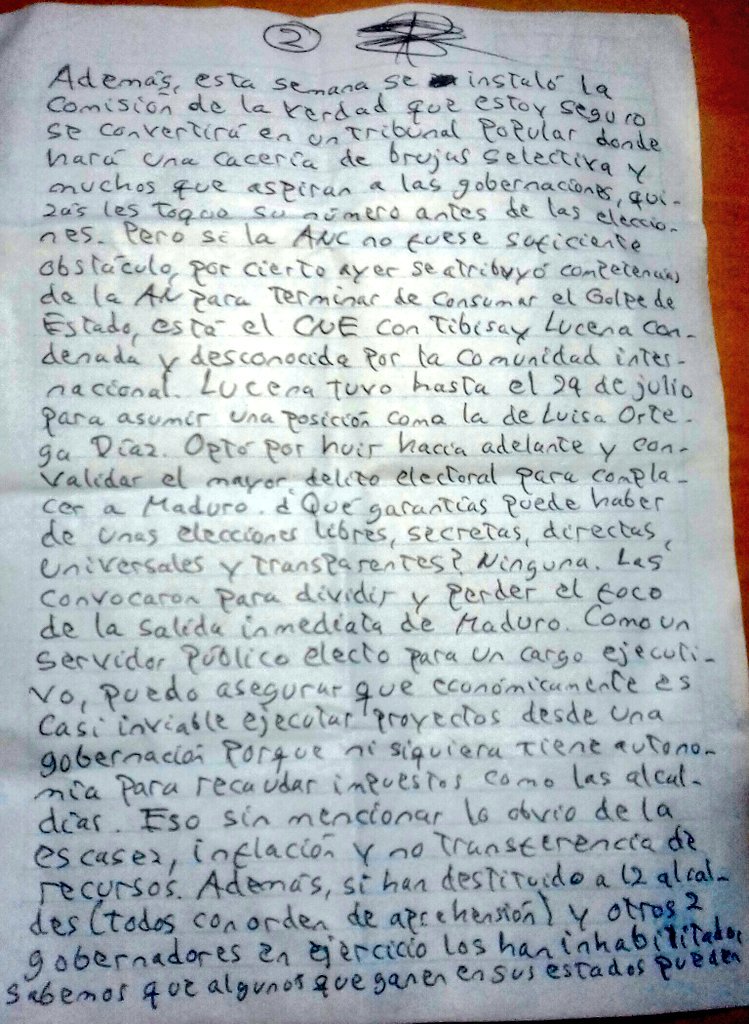 2
Además, esta semana se instaló la
Comisión de la verdad que estoy seguro
se convertirá en un Tribunal Popular donde
hará una cacería de brujas selectiva y
muchos que aspiran a las gobernaciones, qui-
zás les toque su número antes de las eleccio-
nes. Pero si la ANC no fuese suficiente
obstáculo, por cierto ayer se atribuyó competencias
de la AN para terminar de consumar el Golpe de
Estado, está el CNE con Tibisay Lucena con-
denada y desconocida por la comunidad inter-
nacional. Lucena tuvo hasta el 29 de julio
para asumir una posición como la de Luisa Orte-
ga Díaz. Optó por huir hacia adelante y con-
validar el mayor delito electoral para compla-
cer a Maduro. ¿Qué garantías puede haber
de unas elecciones libres, secretas, directas,
universales y transparentes? Ninguna. Las
convocaron para dividir y perder el foco
de la salida inmediata de Maduro. Como un
servidor público electo para un cargo ejecuti-
vo, puedo asegurar que económicamente es
casi inviable ejecutar proyectos desde una
gobernación porque ni siquiera tiene autono-
mía para recaudar impuestos como las alcal-
días. Eso sin mencionar lo obvio de la
escasez, inflación y no transferencia de
recursos. Además, si han destituido a 12 alcal-
des (todos con orden de aprehensión) y otros 2
gobernadores en ejercicio los han inhabilitado
sabemos que algunos que ganen en sus estados pueden